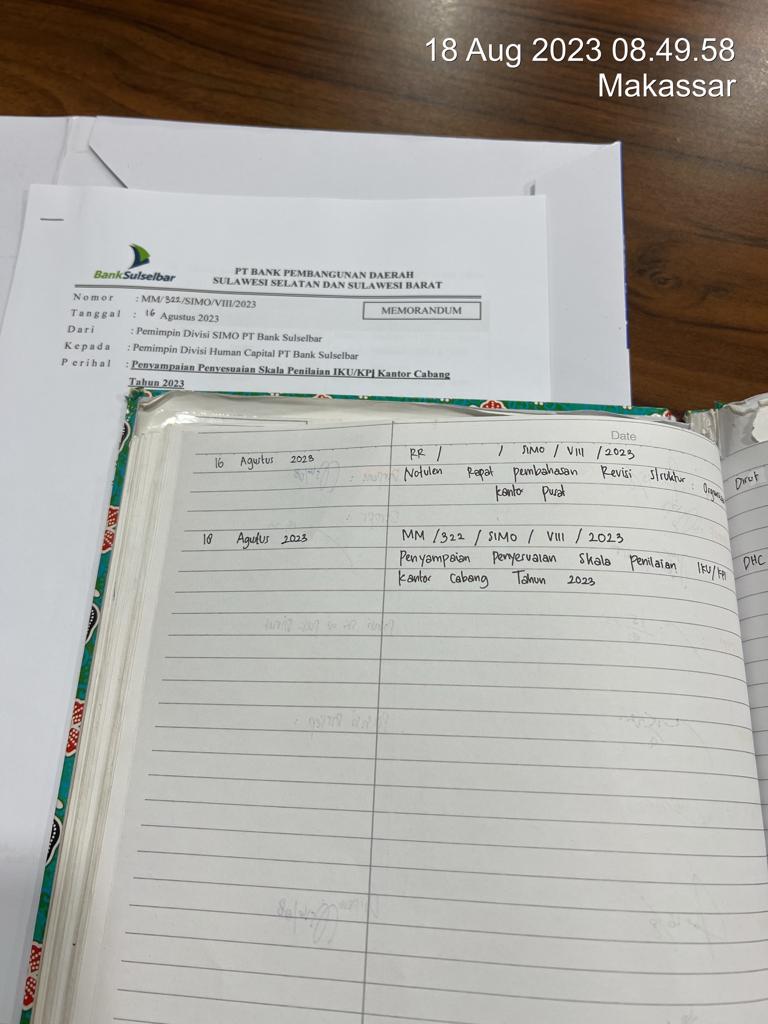 18 Aug 2023 08.49.58
Makassar
BankSulselbar
PT BANK PEMBANGUNAN DAERAH
SULAWESI SELATAN DAN SULAWESI BARAT
Nomor : MM/322/SIMO/VIII/2023
MEMORANDUM
Tanggal : 16 Agustus 2023
Dari : Pemimpin Divisi SIMO PT Bank Sulselbar
Kepada : Pemimpin Divisi Human Capital PT Bank Sulselbar
Perihal : Penyampaian Penyesuaian Skala Penilaian IKU/KPI Kantor Cabang
Tahun 2023
Date
16 Agustus 2023 RR / / SIMO / VIII / 2023
Notulen Rapat pembahasan Revisi struktur Dirut
kantor pusat
18 Agustus 2023 MM /322 / SIMO / VIII / 2023
Penyampaian Penyesuaian Skala penilaian IKU/KPI DHC
kantor Cabang Tahun 2023